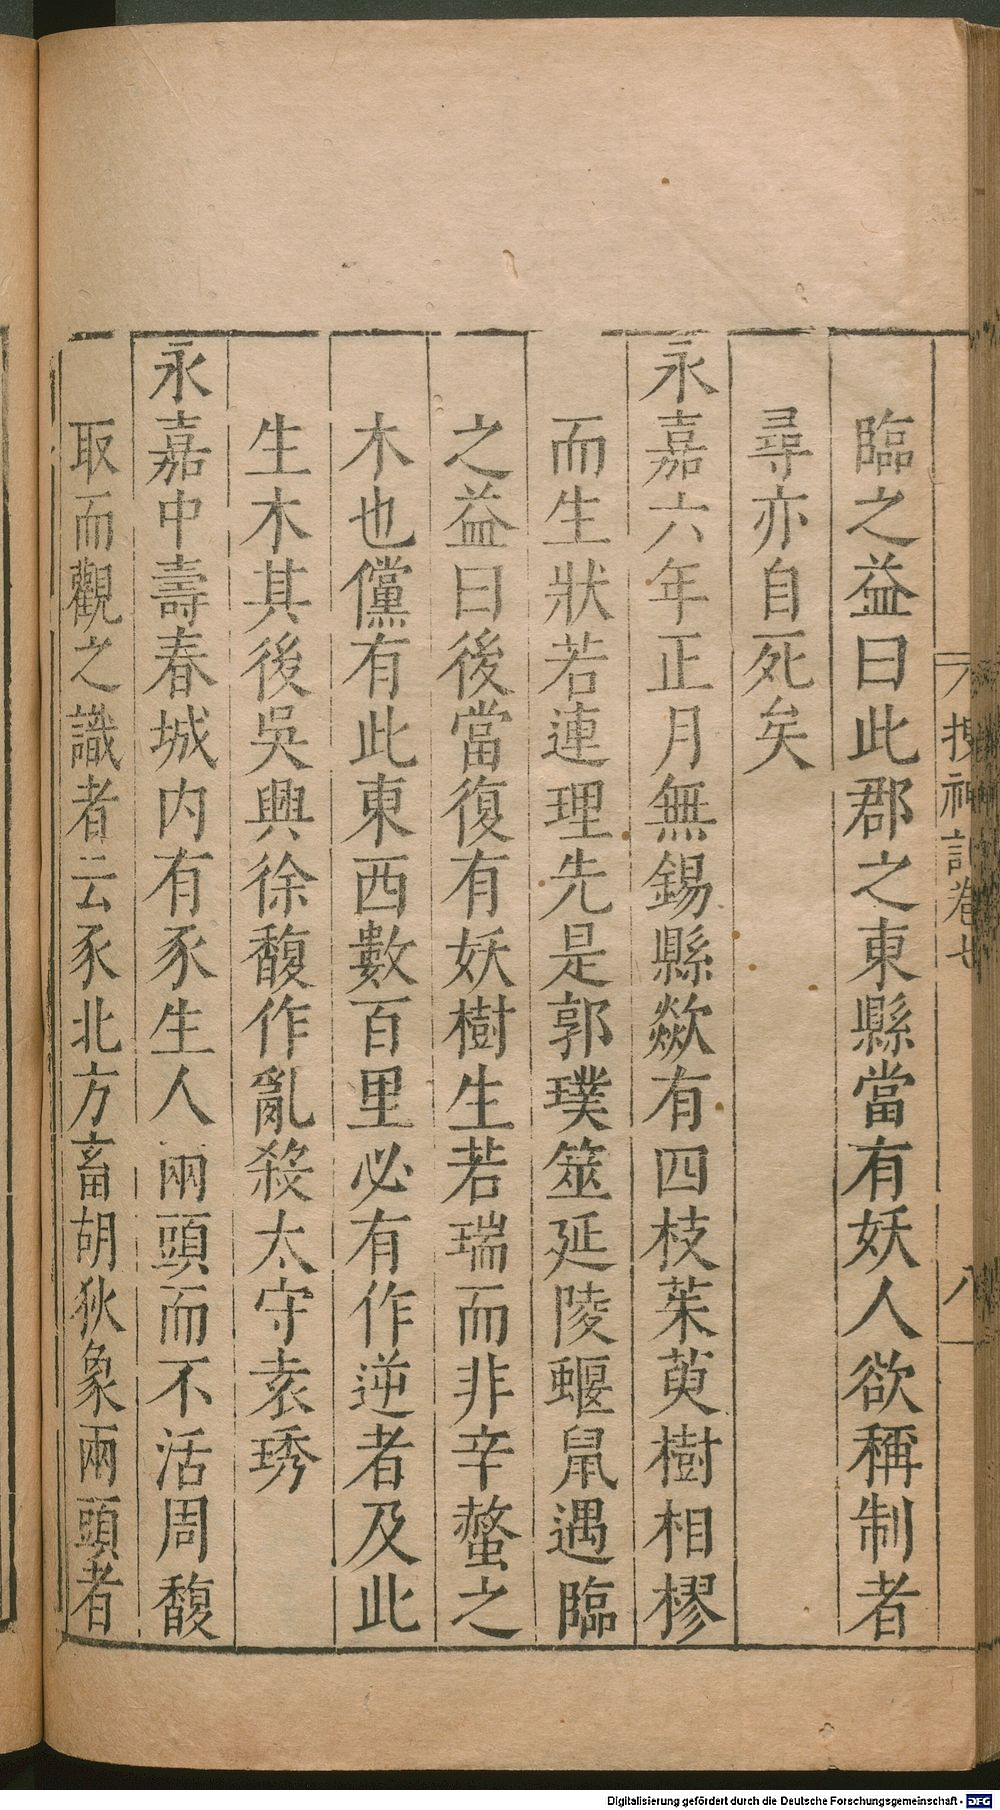 臨之益曰此郡之東縣當有妖人欲稱制者
尋亦自死矣
永嘉六年正月無錫縣歘有四枝茱萸樹相樛
而生狀若連理先是郭璞筮延陵蝘鼠遇臨
之益曰後當復有妖樹生若瑞而非辛螫之
木也儻有此東西數百里必有作逆者及此
生木其後吳興徐馥作亂殺太守袁琇
永嘉中壽春城内有豕生人兩頭而不活周馥
取而觀之識者云豕北方畜胡狄象兩頭者
搜神記卷七
八
Digitalisierung gefördert durch die Deutsche Forschungsgemeinschaft - DFG